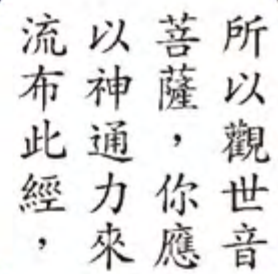 所以觀世音
菩薩，你應
以神通力來
流布此經，